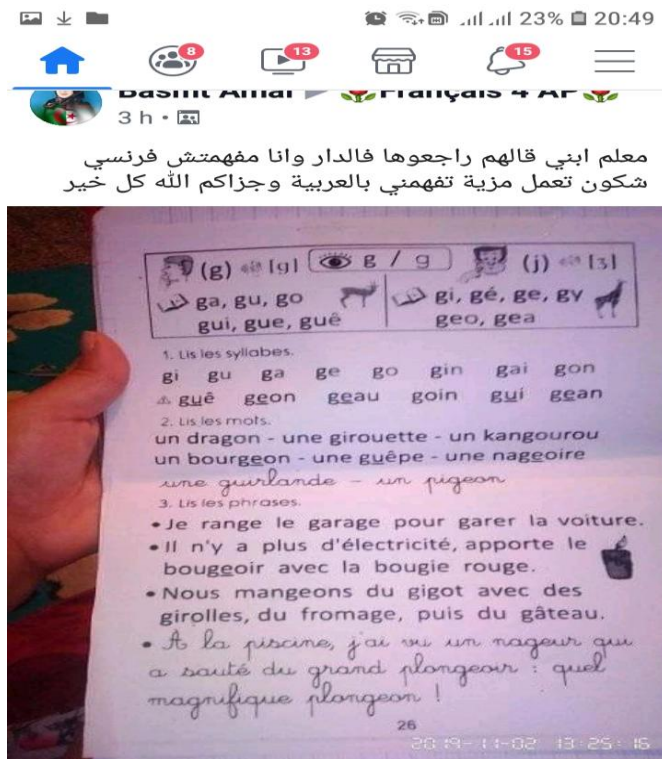 23% 20:49
8 13 15
Basmt Amal ▶ 🌹Français 4 AP🌹
3 h
معلم ابني قالهم راجعوها فالدار وانا مفهمتش فرنسي
شكون تعمل مزية تفهمني بالعربية وجزاكم الله كل خير
(g) [g] g / g (j) [ʒ]
ga, gu, go gi, gé, ge, gy
gui, gue, guê geo, gea
1. Lis les syllabes.
gi gu ga ge go gin gai gon
guê geon geau goin gui gean
2. Lis les mots.
un dragon - une girouette - un kangourou
un bourgeon - une guêpe - une nageoire
une guirlande - un pigeon
3. Lis les phrases.
• Je range le garage pour garer la voiture.
• Il n'y a plus d'électricité, apporte le
bougeoir avec la bougie rouge.
• Nous mangeons du gigot avec des
girolles, du fromage, puis du gâteau.
• A la piscine, j'ai vu un nageur qui
a sauté du grand plongeoir : quel
magnifique plongeon !
26
2019-11-02 13:25:16